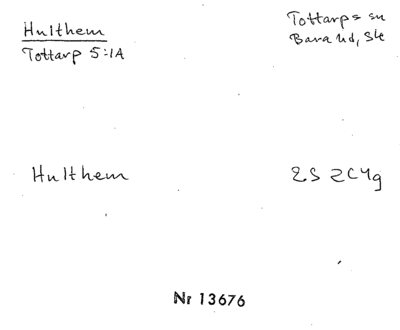 Hulthem
Tottarp 5:1A
Tottarps sn
Bara hd, Sk
Hulthem
2S 2C4g
Nr 13676